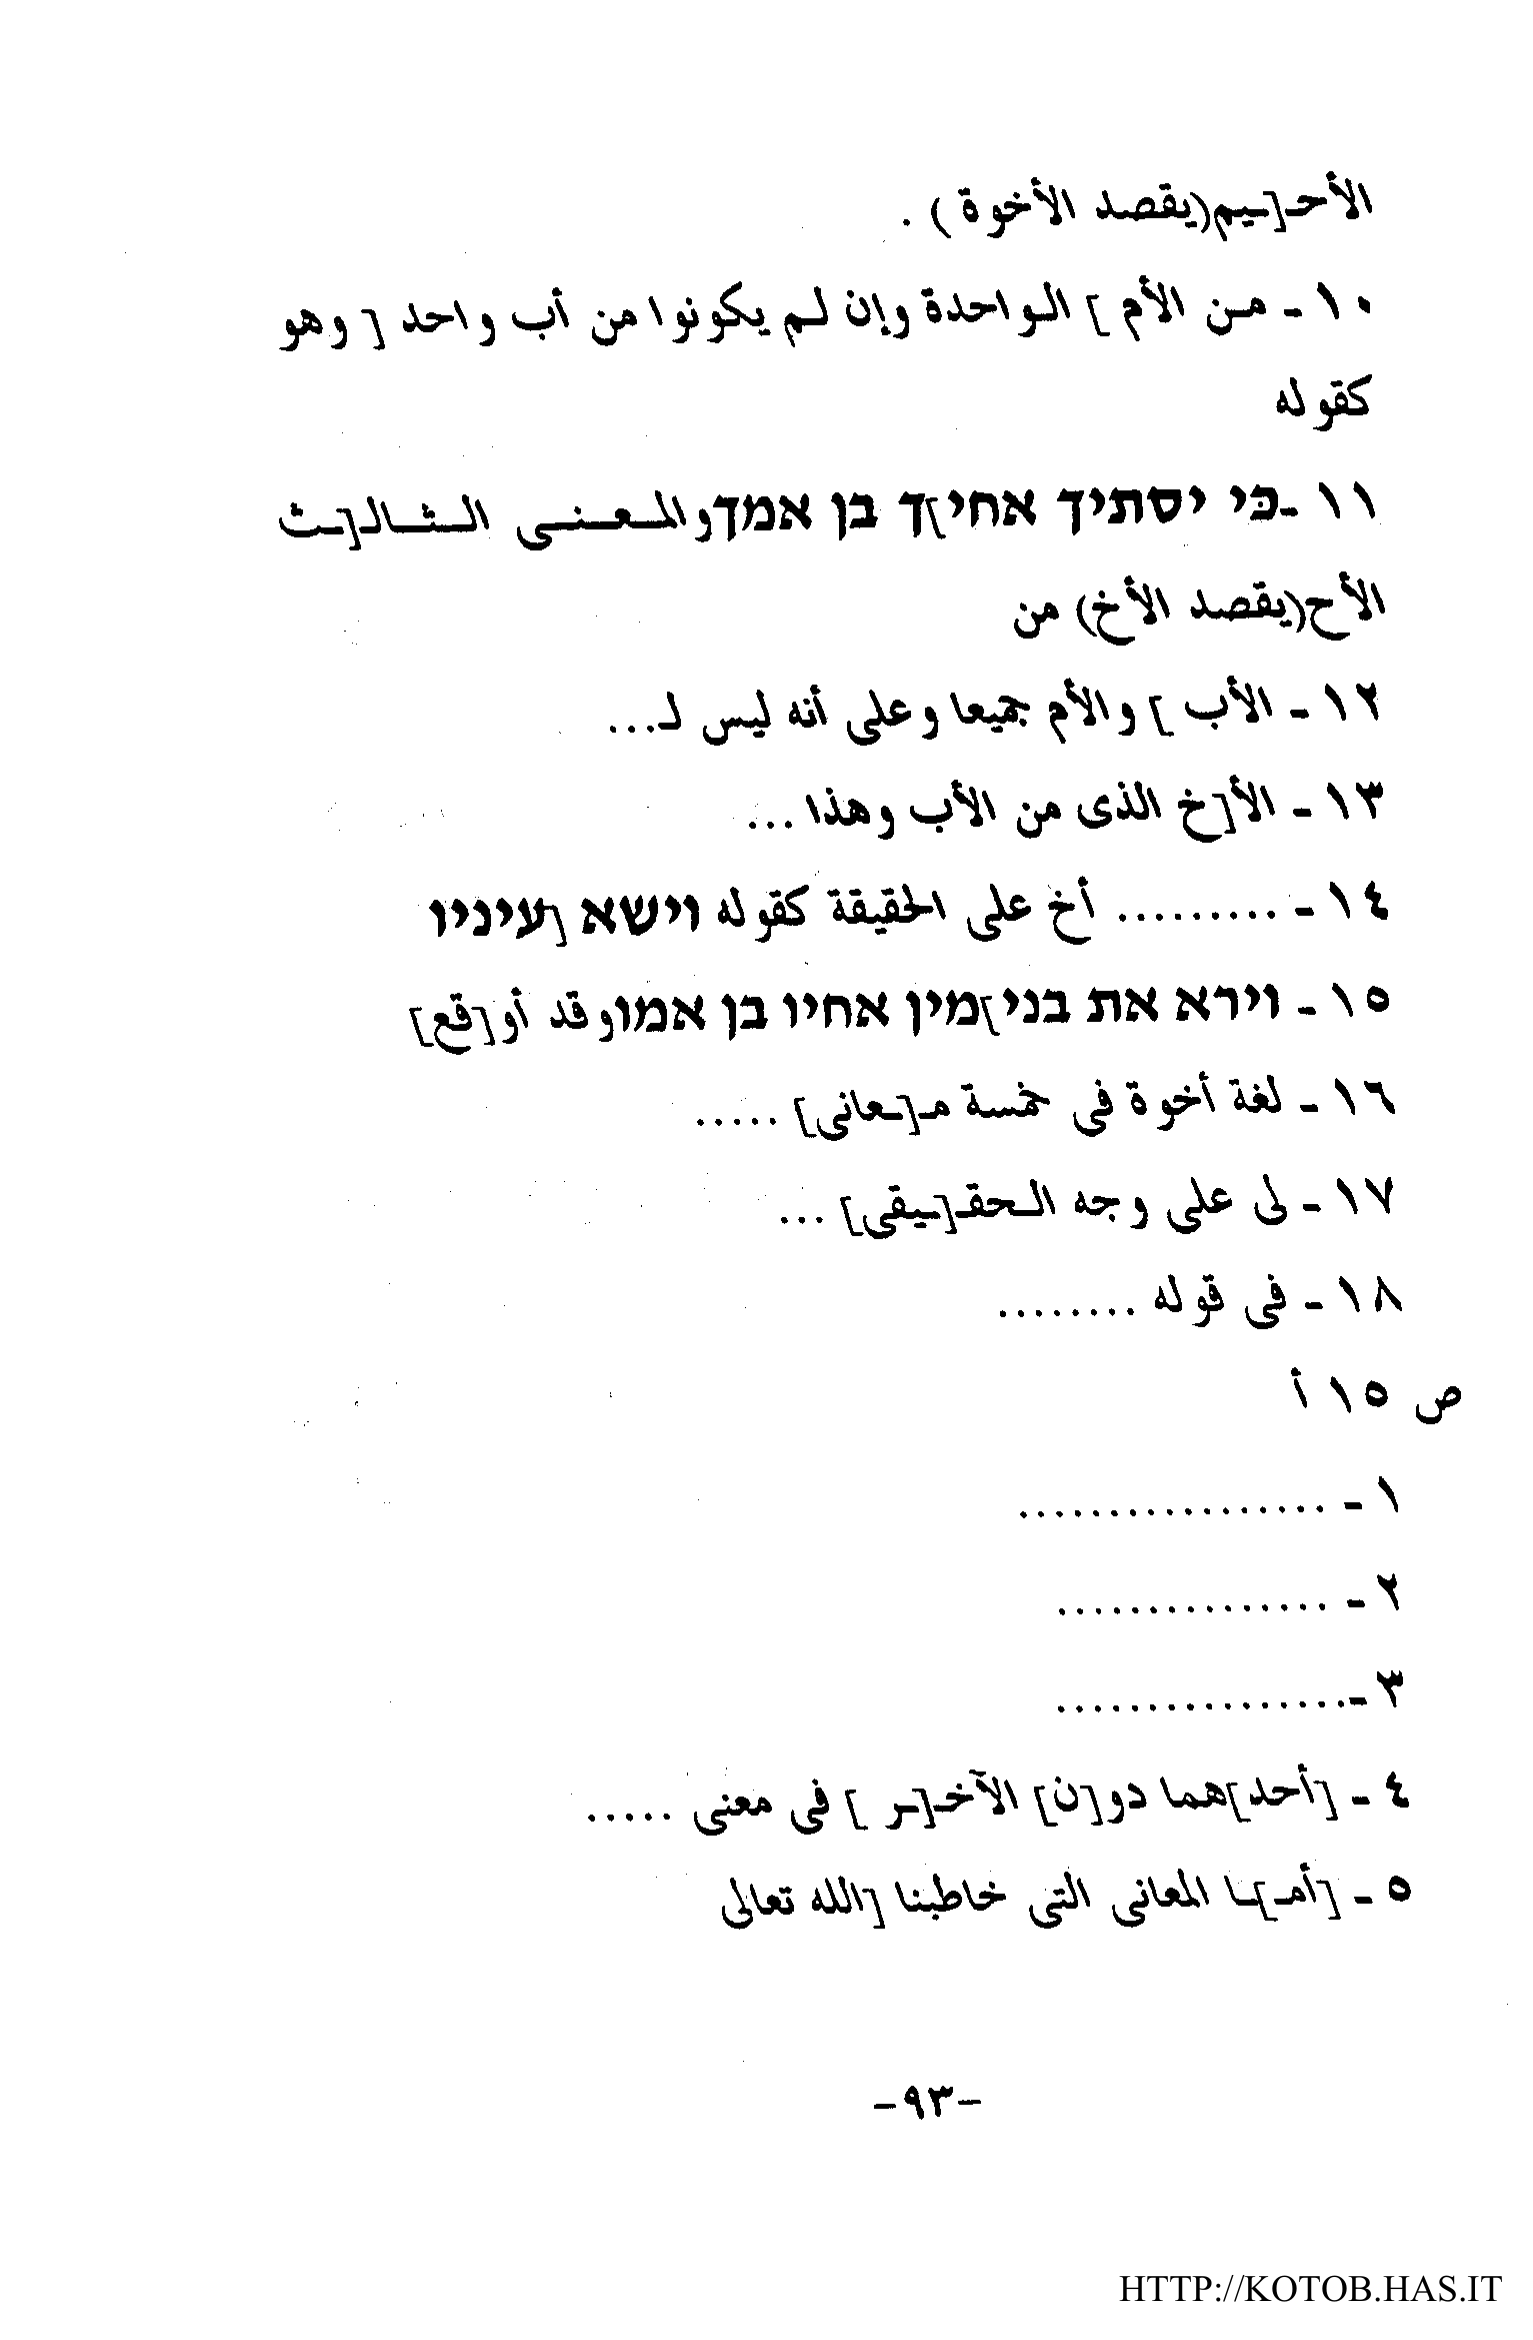 الأحـ[ـيم(يقصد الأخوة ) .
١٠ - من الأم ] الواحدة وإن لم يكونوا من أب واحد [ وهو
كقوله
١١ -כי יסתיך אחי]ך בן אמך والمعنى الثالـ[ـث
الأح(يقصد الأخ) من
١٢ - الأب ] والأم جميعا وعلى أنه ليس لـ...
١٣ - الأ[خ الذى من الأب وهذا ...
١٤ - ......... أخ على الحقيقة كقوله וישא [עיניו
١٥ - וירא את בני]מין אחיו בן אמו وقد أو[قع]
١٦ - لغة أخوة فى خمسة مـ[ـعانى] .....
١٧ - لى على وجه الحقـ[ـيقى] ...
١٨ - فى قوله ........
ص ١٥ أ
١ - .................
٢ - ...............
٣ -................
٤ - [أحد]هما دو[ن] الآخـ[ـر ] فى معنى .....
٥ - [أمـ]ـا المعانى التى خاطبنا [الله تعالى
-٩٣-
HTTP://KOTOB.HAS.IT